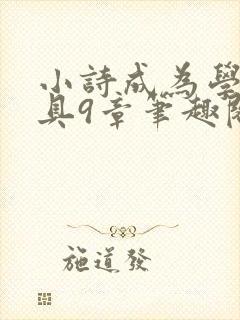 小詩成為學
具9章筆趣閣
施道發